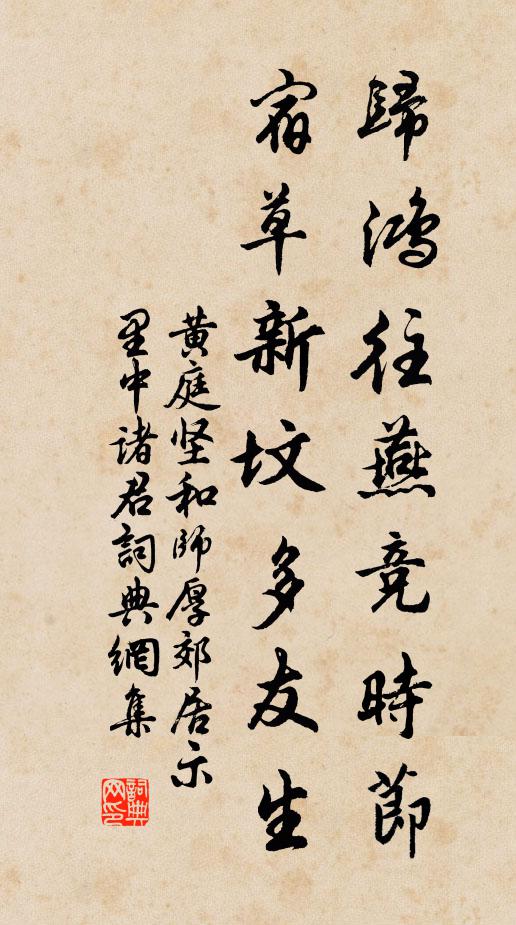 歸鴻往燕竞時節
宿草新坟多友生
黄庭坚和師厚郊居示
里中诸君詞典網集
詞典网印